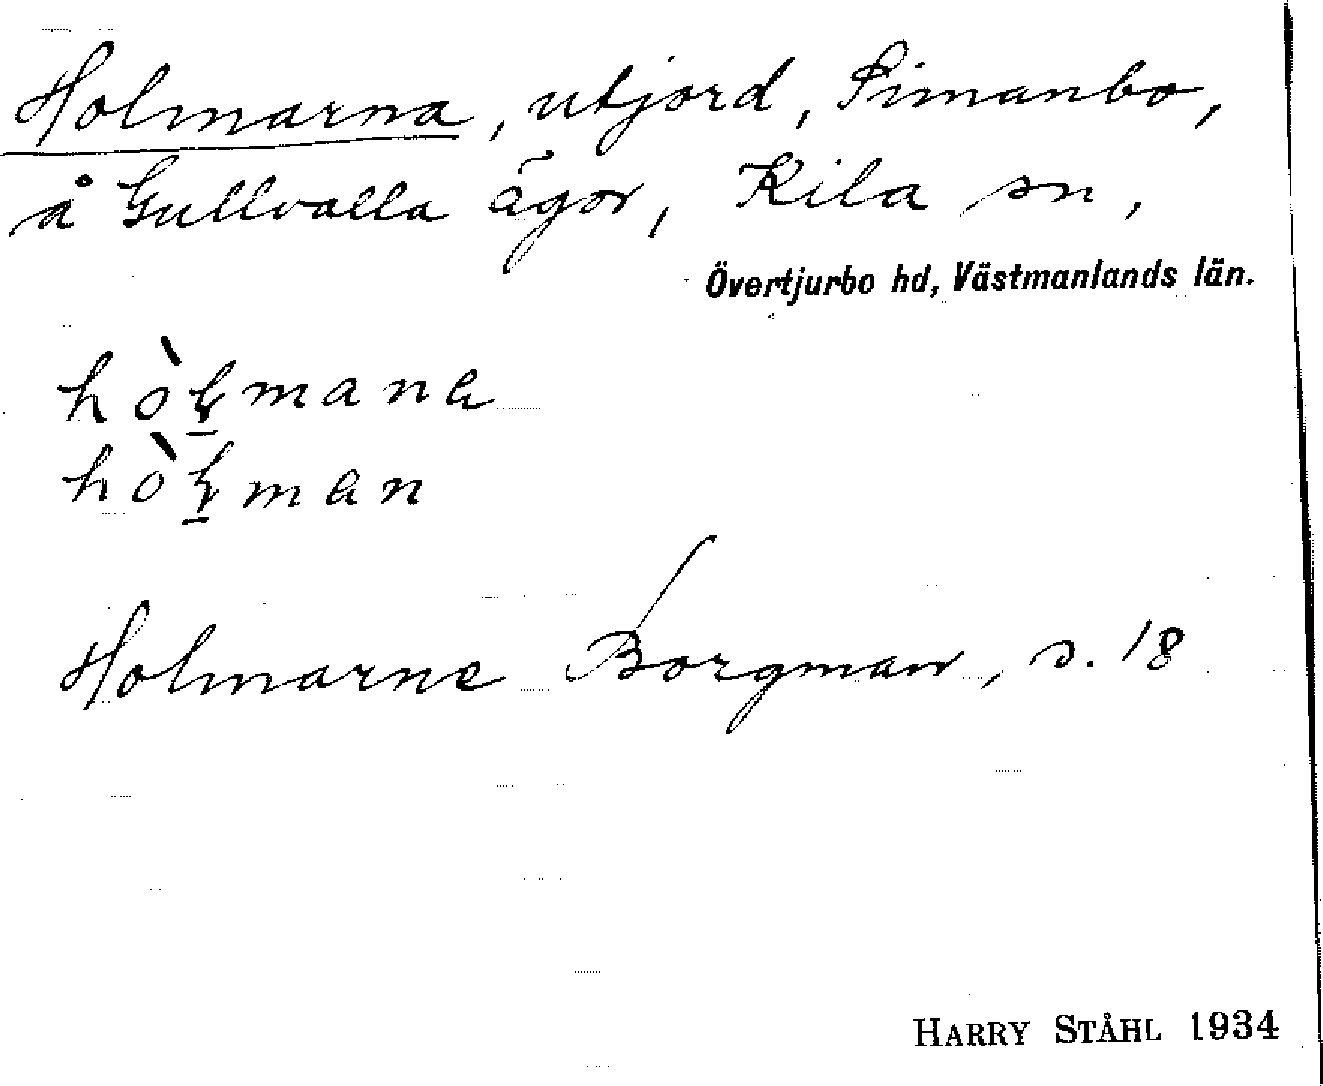 Holmarna, utjord, Simanbo,
å Gullvalla ägor, Kila sn,
Övertjurbo hd, Västmanlands län.
hòɫ̱mana
hòɫ̱man
Holmarne Borgman, s. 18
HARRY STÅHL 1934